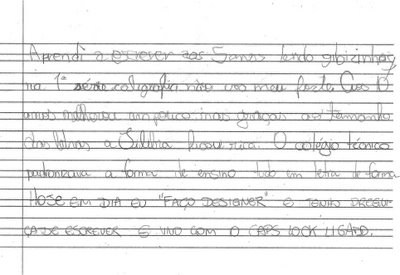 Aprendi a escrever aos 5 anos lendo gibizinhos,
na 1ª série caligrafia não era meu forte. Aos 10
anos melhorou um pouco mas graças ao tamanho
das letras a ficou rica. O colégio técnico
padronizava a forma de ensino tudo em letra de forma
HOJE EM DIA EU "FAÇO DESIGNER" E TENHO PREGUI
ÇA DE ESCREVER E VIVO COM O CAPS LOCK LIGADO.